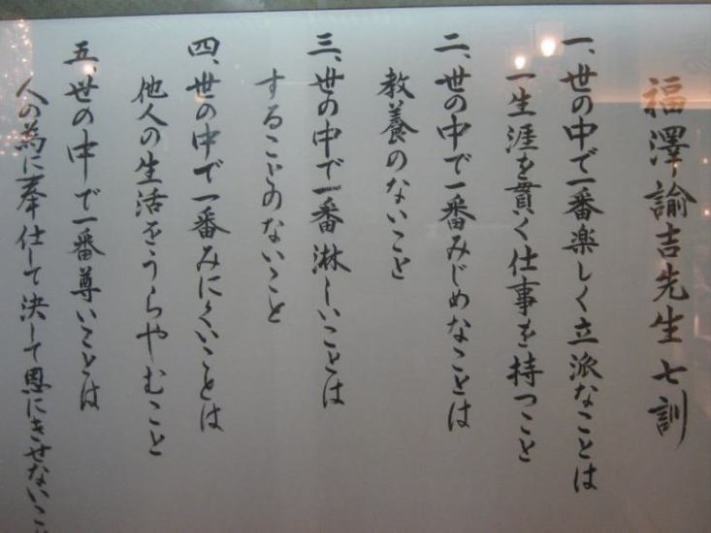 福澤諭吉先生七訓
一、世の中で一番楽しく立派なことは
一生涯を貫く仕事を持つこと
二、世の中で一番みじめなことは
教養のないこと
三、世の中で一番淋しいことは
することのないこと
四、世の中で一番みにくいことは
他人の生活をうらやむこと
五、世の中で一番尊いことは
人の為に奉仕して決して恩にきせないこ